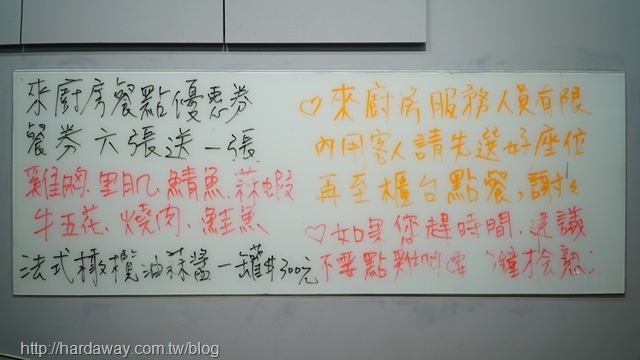 來廚房餐點優惠券
餐券六張送一張
雞胸、里肌、鯖魚、蒜蝦
牛五花、燒肉、鮭魚
法式橄欖油蒜醬一罐$300元
♡來廚房服務人員有限
內用客人請先選好座位
再至櫃台點餐,謝謝
♡如果您趕時間、建議
不要點雞胸
http://hardaway.com.tw/blog